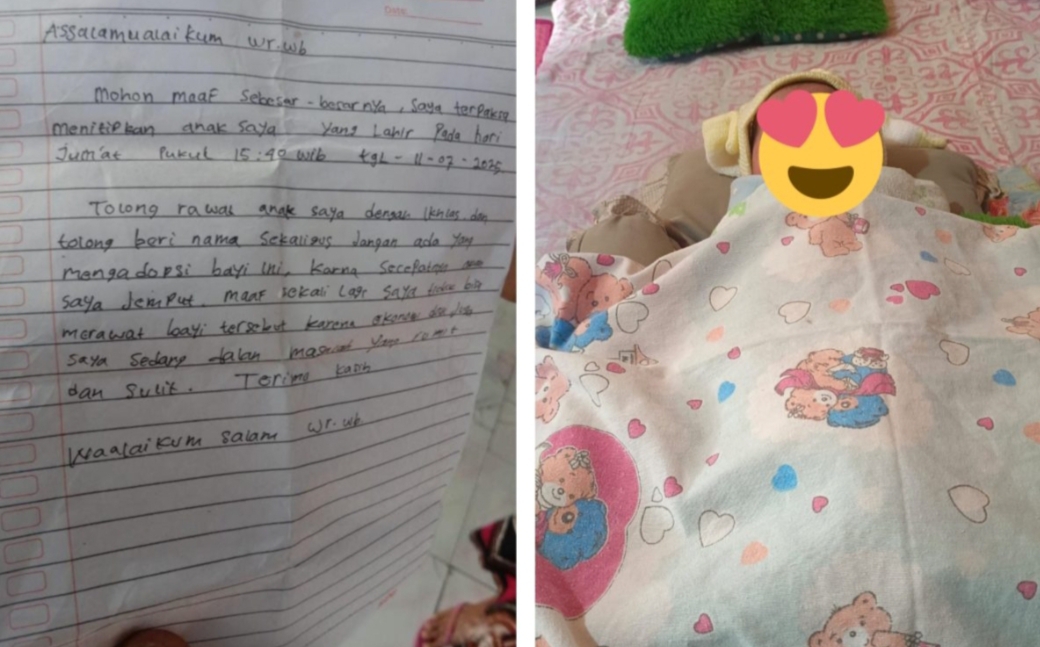 DATE:
Assalamualaikum wr.wb
Mohon maaf sebesar-besarnya, saya terpaksa
menitipkan anak saya yang Lahir Pada hari
Jum'at Pukul 15:40 wib tgl - 11-07-2025
Tolong rawat anak saya dengan ikhlas, dan
tolong beri nama sekaligus Jangan ada yang
mengadopsi bayi ini, karna secepatnya
saya Jemput. maaf sekali lagi saya tidak bisa
merawat bayi tersebut karena ekonomi dan
saya sedang dalan yang rumit
dan Sulit. Terima kasih
Waalaikum salam wr.wb